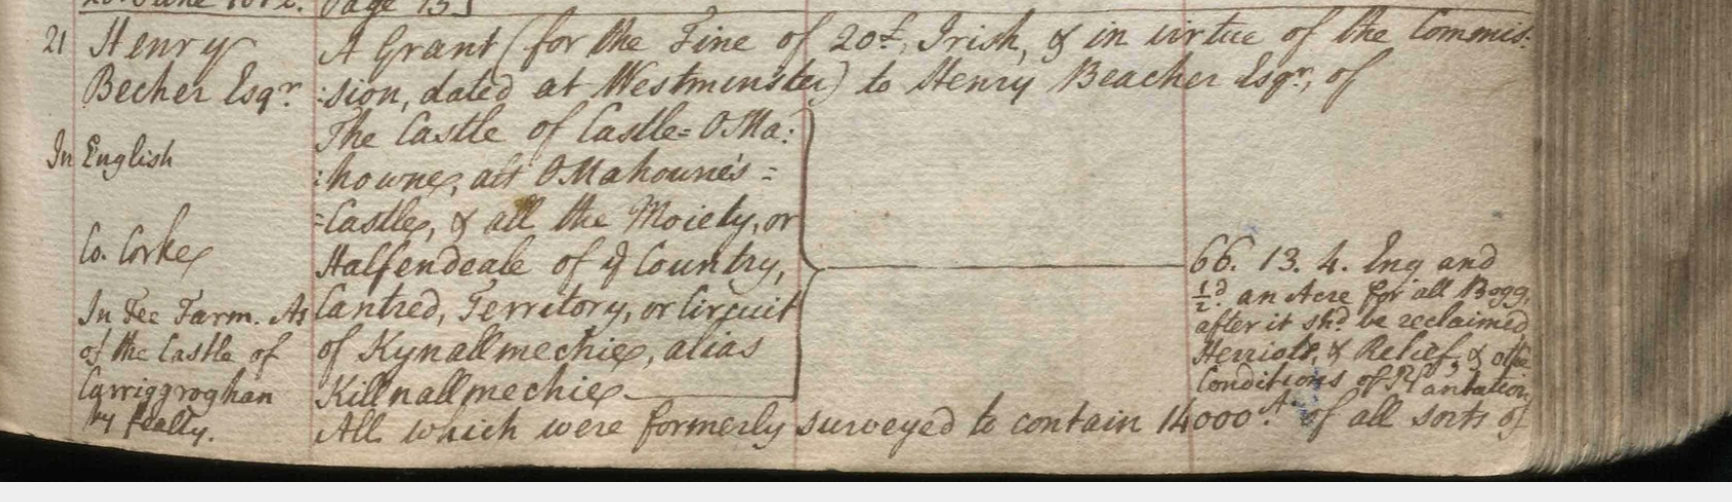 Page 153
21 Henry
Becher Esqr.
In English
Co. Corke
In Fee Farm. As
of the Castle of
Carriggroghan
by fealty.
A Grant (for the Fine of 20£, Irish, & in virtue of the Commis:
:sion, dated at Westminster) to Henry Beacher Esqr., of
The Castle of Castle=OMa:
:howne, als OMahowne's=
=Castle, & all the Moiety, or
Halfendeale of ye Country,
Cantred, Territory, or Circuit
of Kynallmechie, alias
Killnallmechie
66. 13. 4. Eng and
½d. an Acre for all Bogg,
after it shd. be reclaimed
Herriots, & Relief, & othr
Conditions of Plantation,
All which were formerly surveyed to contain 14000 A. of all sorts of